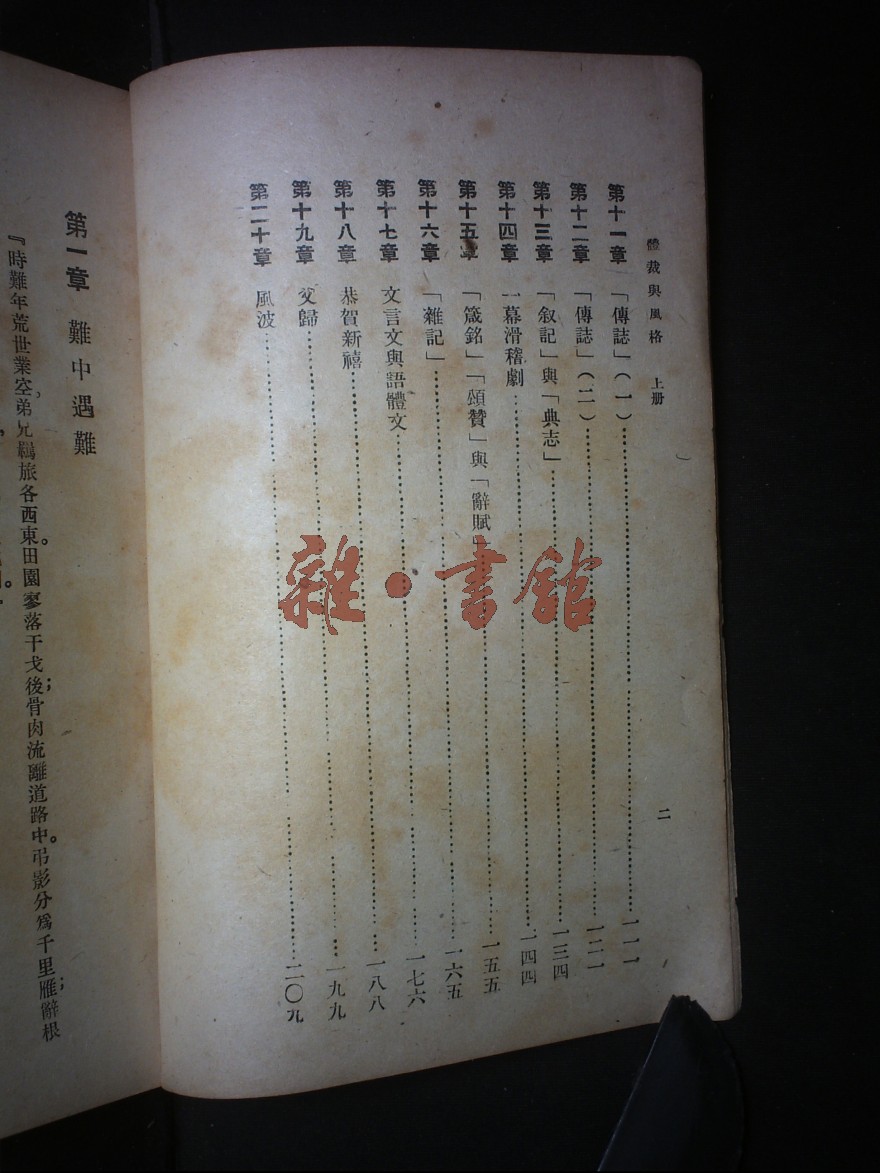 體裁與風格 上册
二
第十一章 「傳誌」(一)……一一一
第十二章 「傳誌」(二)……一二一
第十三章 「叙記」與「典志」……一三四
第十四章 一幕滑稽劇……一四四
第十五章 「箴銘」「頌贊」與「辭賦」……一五五
第十六章 「雜記」……一六五
第十七章 文言文與語體文……一七六
第十八章 恭賀新禧……一八八
第十九章 父歸……一九九
第二十章 風波……二〇九
第一章 難中遇難
『時難年荒世業空,弟兄羈旅各西東。田園寥落干戈後;骨肉流離道路中。弔影分爲千里雁;辭根
雜·書館